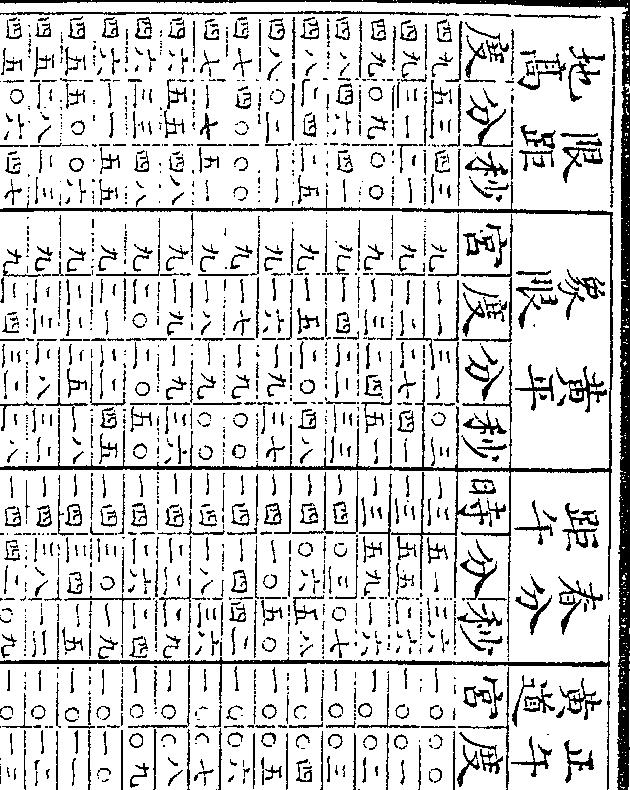 限距地高 黄平象限 春分距午 正午黄道
度 分 秒 宮 度 分 秒 時 分 秒 宮 度
四九 五三 四三 九 一一 三一 〇三 一三 五一 三六 一〇 〇〇
四九 三一 二二 九 一二 二七 四一 一三 五五 二六 一〇 〇一
四九 〇九 〇〇 九 一三 二四 五一 一三 五九 一六 一〇 〇二
四八 四六 四一 九 一四 二二 三三 一四 〇三 〇七 一〇 〇三
四八 二四 二五 九 一五 二〇 四八 一四 〇六 五八 一〇 〇四
四八 〇二 一一 九 一六 一九 三七 一四 一〇 五〇 一〇 〇五
四七 四〇 〇〇 九 一七 一九 〇〇 一四 一四 四二 一〇 〇六
四七 一七 五一 九 一八 一九 〇〇 一四 一八 三六 一〇 〇七
四六 五五 四八 九 一九 一九 三六 一四 二二 二九 一〇 〇八
四六 三三 四八 九 二〇 二〇 五〇 一四 二六 二四 一〇 〇九
四六 一一 五五 九 二一 二二 四五 一四 三〇 一九 一〇 一〇
四五 五〇 〇六 九 二二 二五 一八 一四 三四 一五 一〇 一一
四五 二八 二三 九 二三 二八 三二 一四 三八 一二 一〇 一二
四五 〇六 四七 九 二四 三二 二八 一四 四二 〇九 一〇 一三